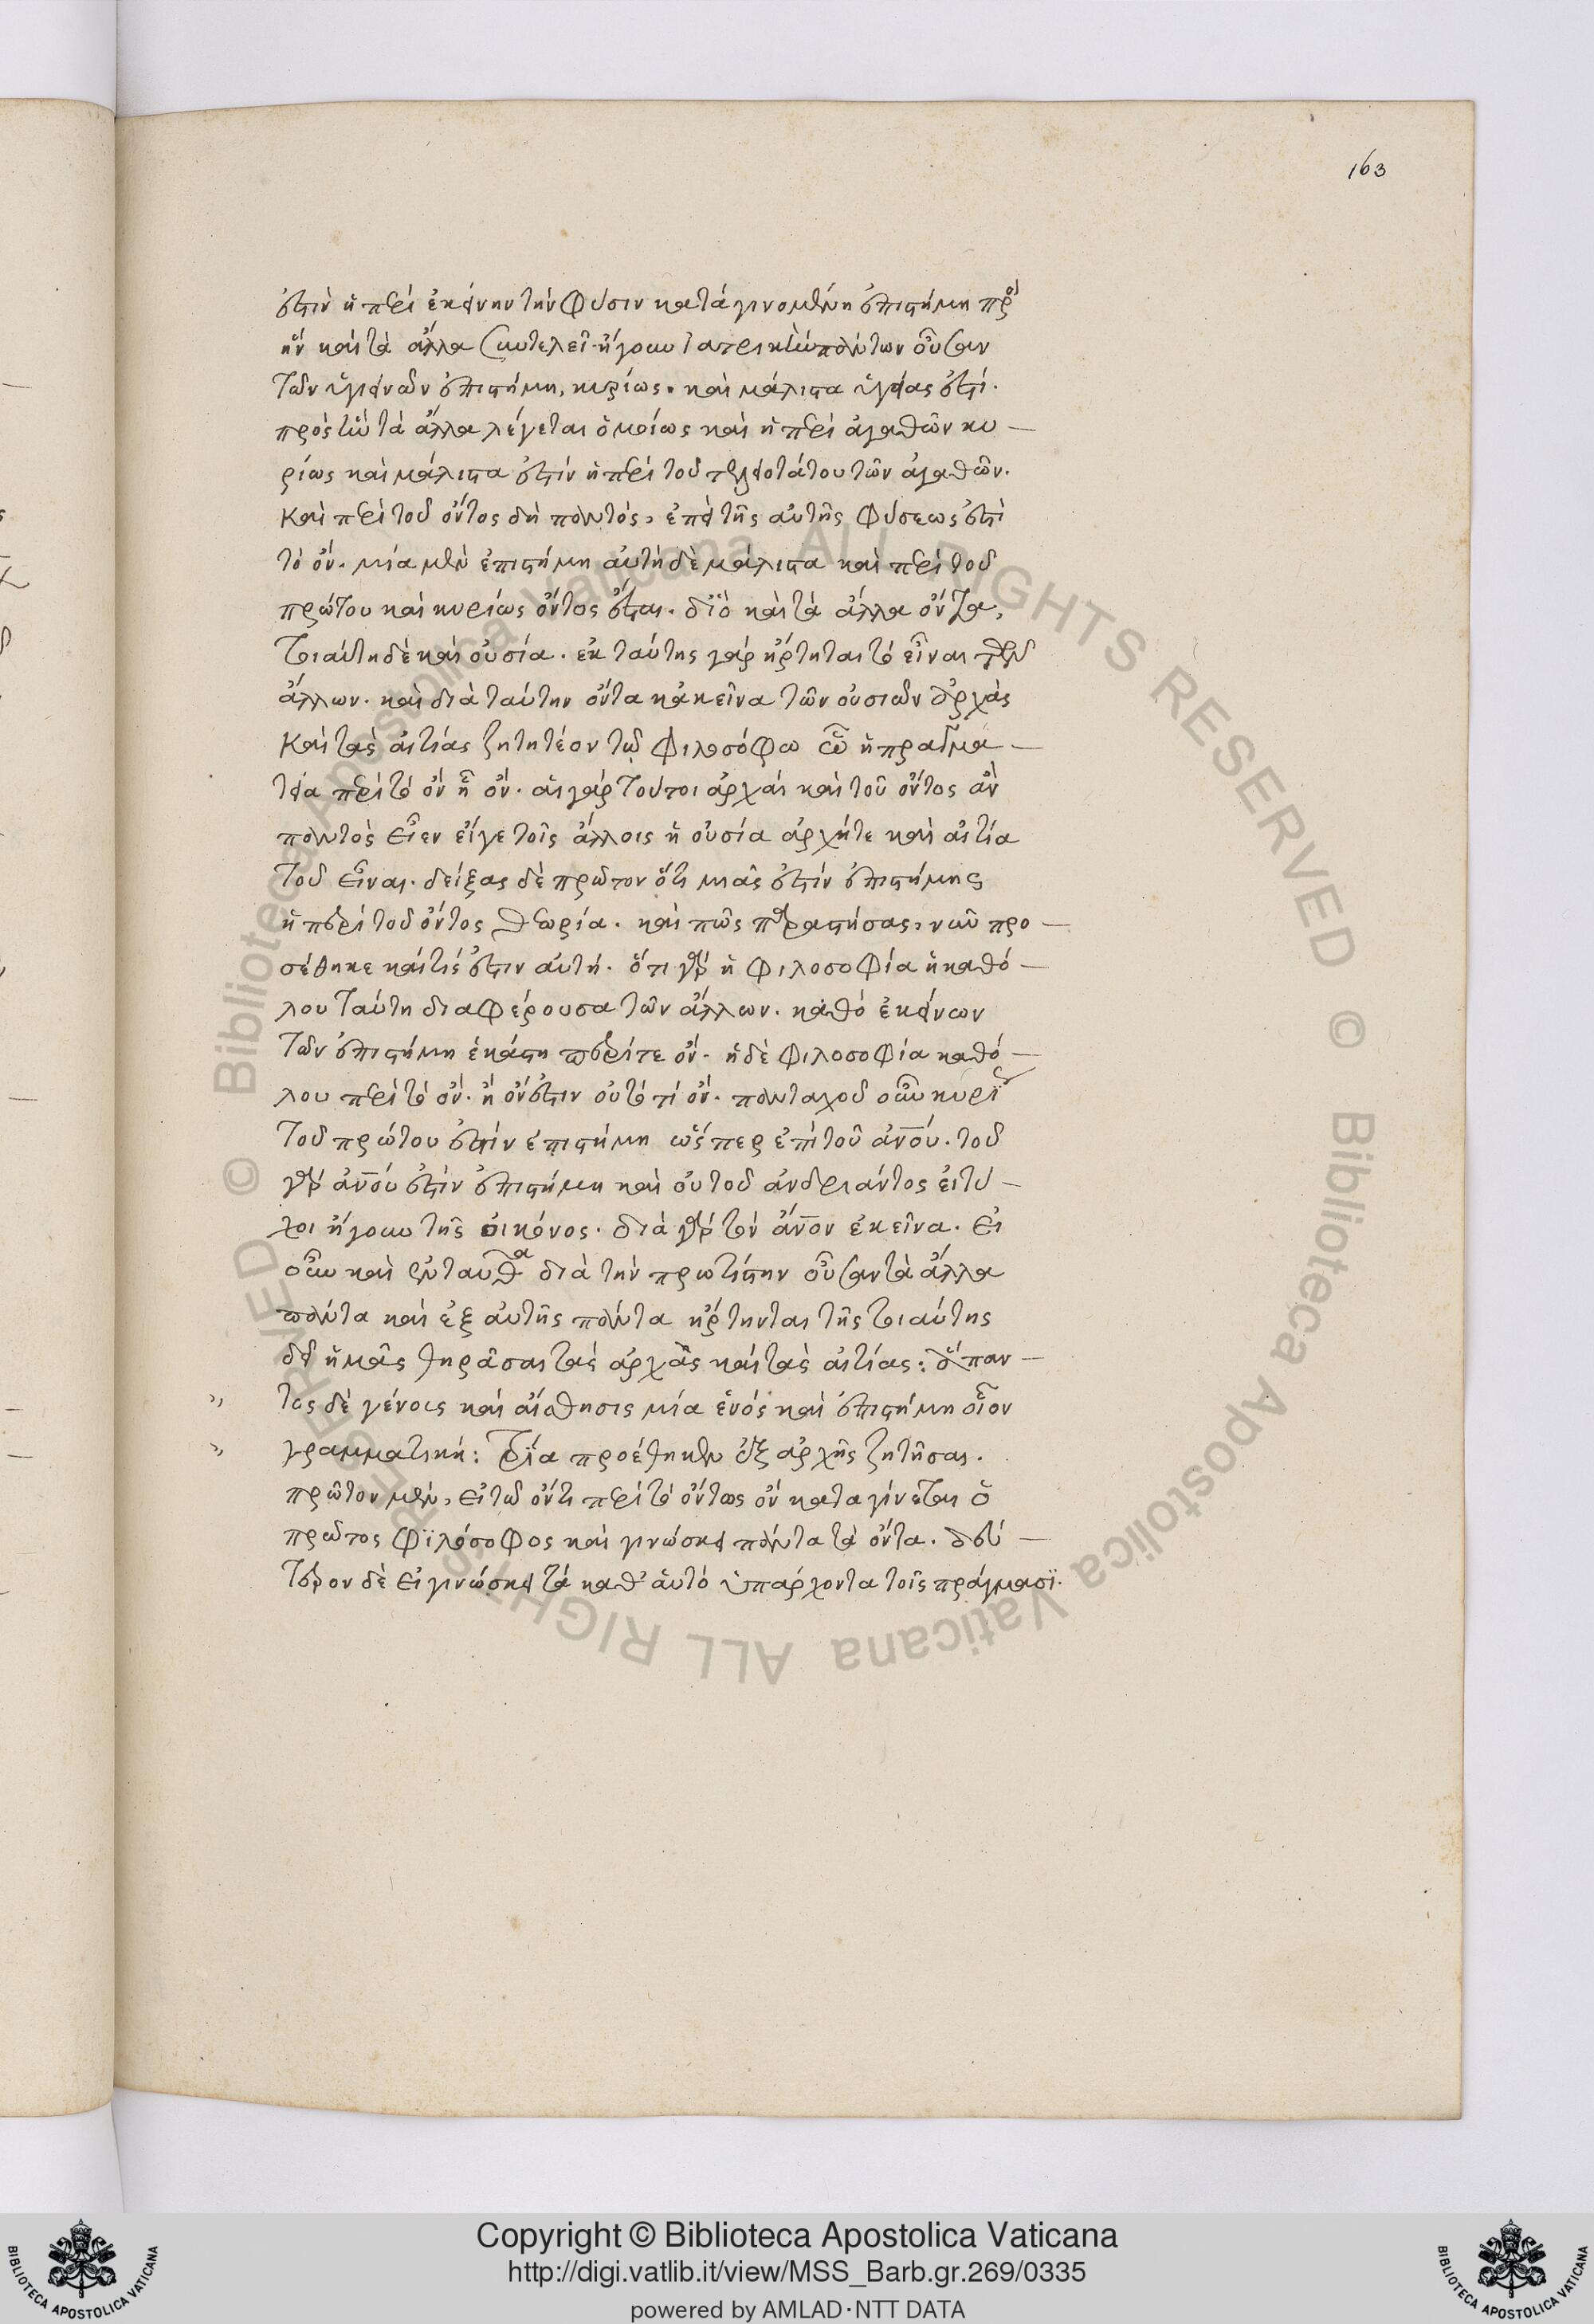 163
ἐστὶν ἡ περὶ ἐκείνην τὴν φύσιν καταγινομένη ἐπιστήμη πρὸς
ἣν καὶ τὰ ἄλλα συντελεῖ. ἤγουν ἰατρικὴ πάντων οὖσαν
τῶν ὑγιεινῶν ἐπιστήμη, κυρίως. καὶ μάλιστα ὑγείας ἐστί.
πρὸς ἣν τὰ ἄλλα λέγεται ὁμοίως καὶ ἡ περὶ ἀγαθῶν κυ—
ρίως καὶ μάλιστα ἐστὶν ἡ περὶ τοῦ τελειοτάτου τῶν ἀγαθῶν.
καὶ περὶ τοῦ ὄντος δὴ παντός, ἐπεὶ τῆς αὐτῆς φύσεως ἐστὶ
τὸ ὄν. μία μὲν ἐπιστήμη αὐτὴ δὲ μάλιστα καὶ περὶ τοῦ
πρώτου καὶ κυρίως ὄντος ἔσται. δϊὸ καὶ τὰ ἄλλα ὄντα,
τοιαύτη δὲ καὶ οὐσία. ἐκ ταύτης γὰρ ἤρτηται τὸ εἶναι τῶν
ἄλλων. καὶ διὰ ταύτην ὄντα κἀκεῖνα τῶν οὐσιῶν ἀρχὰς
καὶ τὰς αἰτίας ζητητέον τῷ φιλοσόφω ᾧ ἡ πραγμα—
τεία περὶ τὸ ὂν ᾗ ὄν. αἱ γὰρ τούτοι ἀρχαὶ καὶ τοῦ ὄντος ἂν
παντὸς εἶεν εἴγε τοῖς ἄλλοις ἡ οὐσία ἀρχή τε καὶ αἰτία
τοῦ εἶναι. δείξας δὲ πρῶτον ὅτι μιᾶς ἐστὶν ἐπιστήμης
ἡ περὶ τοῦ ὄντος θεωρία. καὶ πῶς παραστήσας, νῦν προ—
σέθηκε καὶ τίς ἐστιν αὐτή. ὅτι γὰρ ἡ φιλοσοφία ἡ καθό—
λου ταύτη διαφέρουσα τῶν ἄλλων. καθὸ ἐκείνων
τῶν ἐπιστήμη ἑκάστη περί τε ὄν. ἡ δὲ φιλοσοφία καθό—
λου περὶ τὸ ὄν. ᾗ ὄν ἐστιν οὐ τὸ τὶ ὄν. πανταχοῦ οὖν κυρίως
τοῦ πρώτου ἐστὶν ἐπιστήμη ὥσπερ ἐπὶ τοῦ ἀνου. τοῦ
γὰρ ἀνου ἐστὶν ἐπιστήμη καὶ οὐ τοῦ ἀνδριάντος εἰ τύ—
χοι ἤγουν τῆς εἰκόνος. διὰ γὰρ τὸν ἄνον ἐκεῖνα. εἰ
οὖν καὶ ἐνταῦθα διὰ τὴν πρωτίστην οὖσαν τὰ ἄλλα
πάντα καὶ ἐξ αὐτῆς πάντα ἤρτηνται τῆς τοιαύτης
δεῖ ἡμᾶς θηρᾶσαι τὰς ἀρχὰς καὶ τὰς αἰτίας: ἅπαν—
„ τος δὲ γένους καὶ αἴσθησις μία ἑνὸς καὶ ἐπιστήμη οἷον
„ γραμματική: τρία προέθηκεν ἐξ ἀρχῆς ζητῆσαι.
πρῶτον μὲν, εἰ τῷ ὄντι περὶ τὸ ὄντως ὂν καταγίνεται ὁ
πρῶτος φϊλόσοφος καὶ γινώσκει πάντα τὰ ὄντα. δεύ—
τερον δὲ εἰ γινώσκει τὰ καθ᾽ αὑτὸ ὑπάρχοντα τοῖς πράγμασϊ.
© Biblioteca Apostolica Vaticana ALL RIGHTS RESERVED © Biblioteca Apostolica Vaticana ALL RIGHTS RESERVED
Copyright © Biblioteca Apostolica Vaticana
http://digi.vatlib.it/view/MSS_Barb.gr.269/0335
powered by AMLAD·NTT DATA
BIBLIOTECA APOSTOLICA VATICANA
BIBLIOTECA APOSTOLICA VATICANA